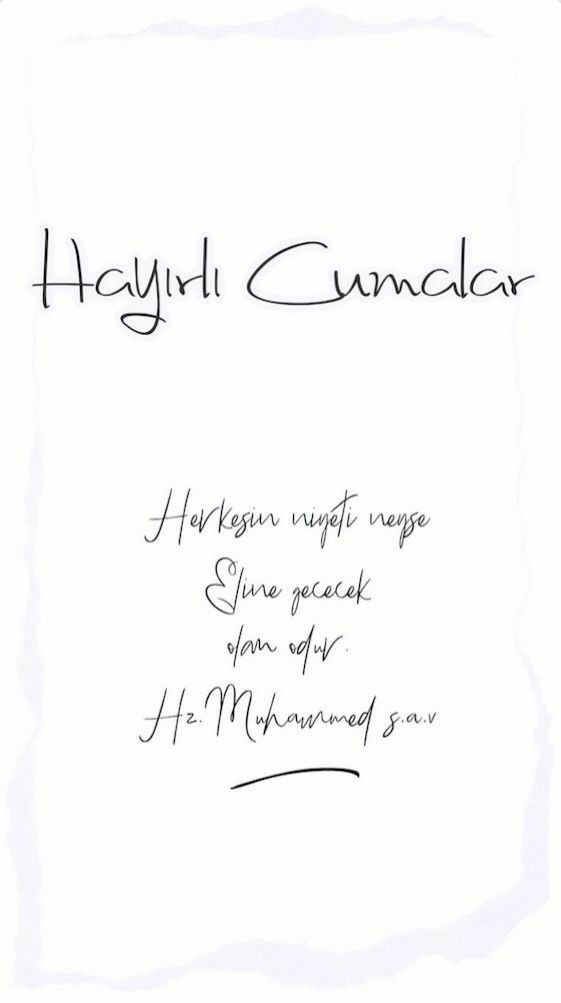 Hayırlı Cumalar
Herkesin niyeti neyse
Eline geçecek
olan odur.
Hz. Muhammed s.a.v